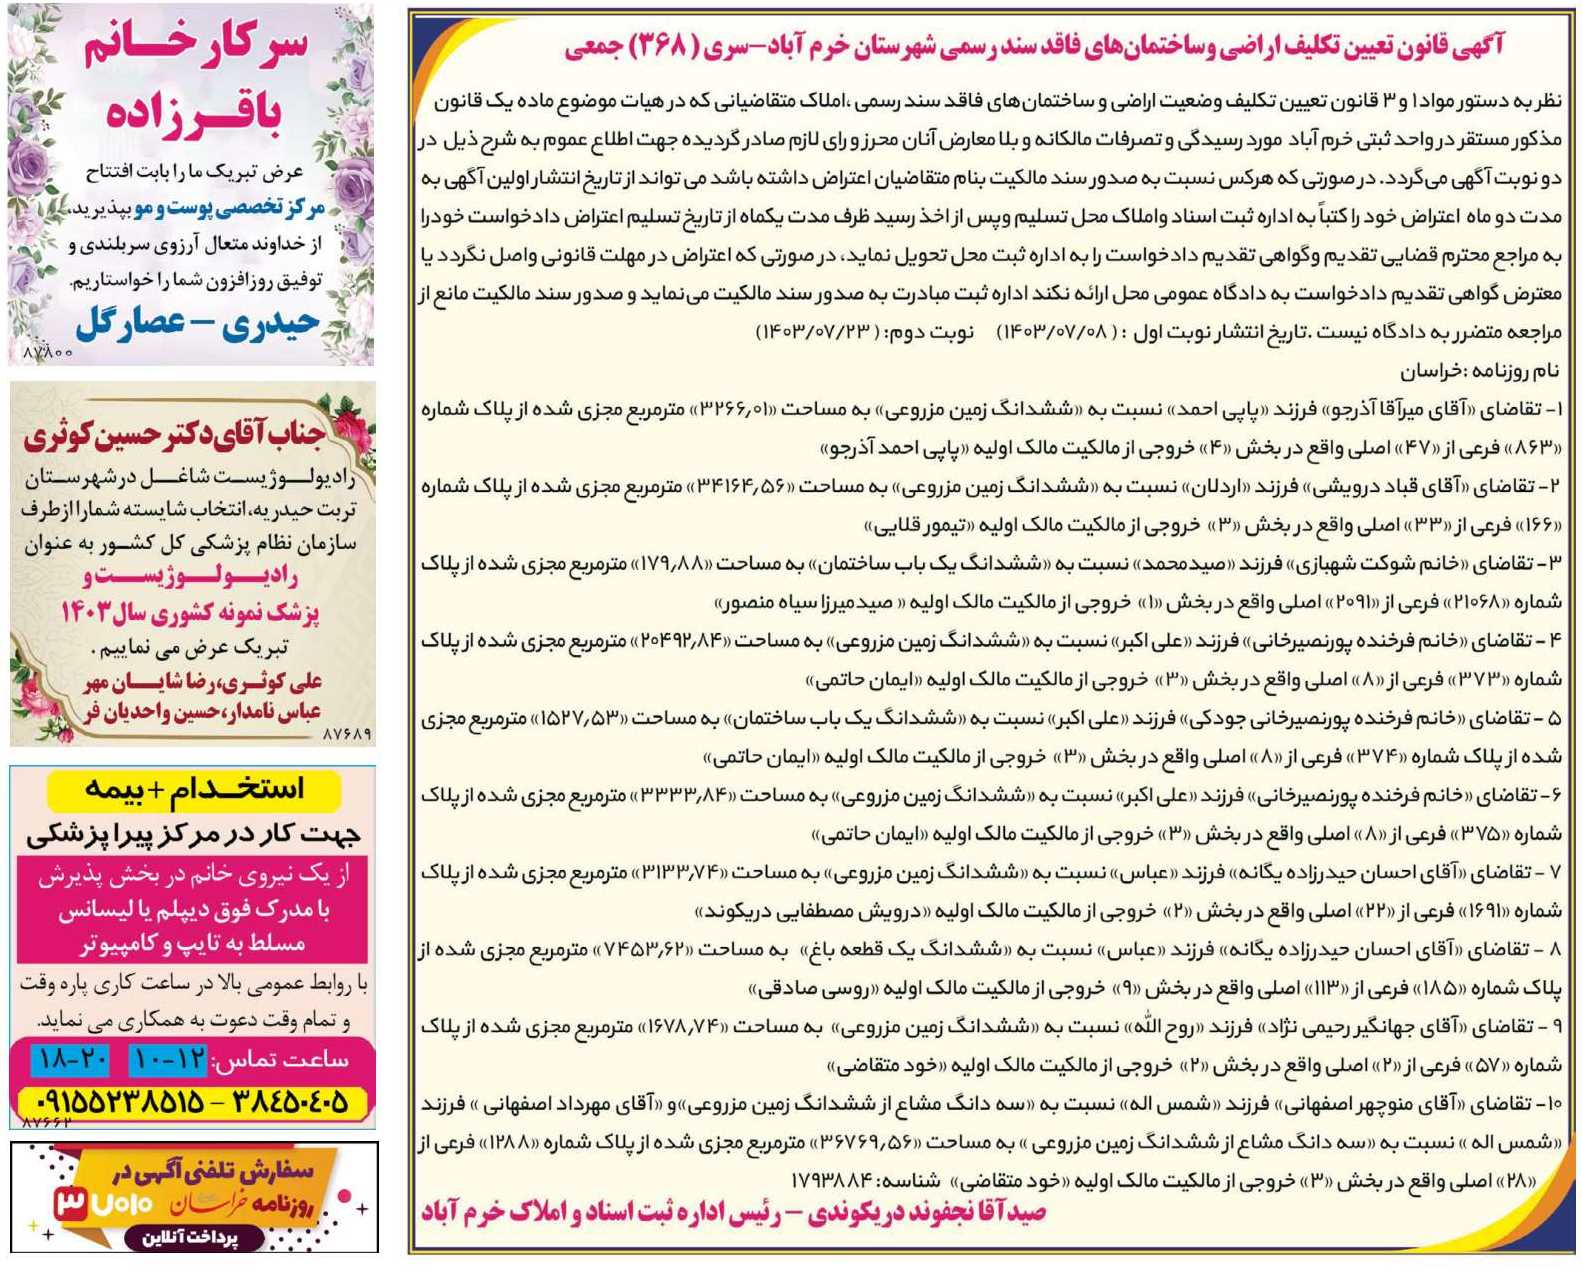 آگهی قانون تعیین تکلیف اراضی وساختمان‌های فاقد سند رسمی شهرستان خرم آباد-سری (۳۶۸) جمعی
نظر به دستور مواد۱ و ۳ قانون تعیین تکلیف وضعیت اراضی و ساختمان‌های فاقد سند رسمی ،املاک متقاضیانی که در هیات موضوع ماده یک قانون
مذکور مستقر در واحد ثبتی خرم آباد مورد رسیدگی و تصرفات مالکانه و بلا معارض آنان محرز و رای لازم صادر گردیده جهت اطلاع عموم به شرح ذیل در
دو نوبت آگهی می‌گردد. در صورتی که هرکس نسبت به صدور سند مالکیت بنام متقاضیان اعتراض داشته باشد می تواند از تاریخ انتشار اولین آگهی به
مدت دو ماه اعتراض خود را کتباً به اداره ثبت اسناد واملاک محل تسلیم وپس از اخذ رسید ظرف مدت یکماه از تاریخ تسلیم اعتراض دادخواست خودرا
به مراجع محترم قضایی تقدیم وگواهی تقدیم دادخواست را به اداره ثبت محل تحویل نماید، در صورتی که اعتراض در مهلت قانونی واصل نگردد یا
معترض گواهی تقدیم دادخواست به دادگاه عمومی محل ارائه نکند اداره ثبت مبادرت به صدور سند مالکیت می‌نماید و صدور سند مالکیت مانع از
مراجعه متضرر به دادگاه نیست .تاریخ انتشار نوبت اول : (۱۴۰۳/۰۷/۰۸) نوبت دوم: (۱۴۰۳/۰۷/۲۳)
نام روزنامه :خراسان
۱- تقاضای «آقای میرآقا آذرجو» فرزند «پاپی احمد» نسبت به «ششدانگ زمین مزروعی» به مساحت «۳۲۶۶٫۰۱» مترمربع مجزی شده از پلاک شماره
«۸۶۳» فرعی از «۴۷» اصلی واقع در بخش «۴» خروجی از مالکیت مالک اولیه «پاپی احمد آذرجو»
۲- تقاضای «آقای قباد درویشی» فرزند «اردلان» نسبت به «ششدانگ زمین مزروعی» به مساحت «۳۴۱۶۴٫۵۶» مترمربع مجزی شده از پلاک شماره
«۱۶۶» فرعی از «۳۳» اصلی واقع در بخش «۳» خروجی از مالکیت مالک اولیه «تیمور قلایی»
۳- تقاضای «خانم شوکت شهبازی» فرزند «صیدمحمد» نسبت به «ششدانگ یک باب ساختمان» به مساحت «۱۷۹٫۸۸» مترمربع مجزی شده از پلاک
شماره «۲۱۰۶۸» فرعی از «۲۰۹۱» اصلی واقع در بخش «۱» خروجی از مالکیت مالک اولیه « صیدمیرزا سیاه منصور»
۴- تقاضای «خانم فرخنده پورنصیرخانی» فرزند «علی اکبر» نسبت به «ششدانگ زمین مزروعی» به مساحت «۲۰۴۹۲٫۸۴» مترمربع مجزی شده از پلاک
شماره «۳۷۳» فرعی از «۸» اصلی واقع در بخش «۳» خروجی از مالکیت مالک اولیه «ایمان حاتمی»
۵- تقاضای «خانم فرخنده پورنصیرخانی جودکی» فرزند «علی اکبر» نسبت به «ششدانگ یک باب ساختمان» به مساحت «۱۵۲۷٫۵۳» مترمربع مجزی
شده از پلاک شماره «۳۷۴» فرعی از «۸» اصلی واقع در بخش «۳» خروجی از مالکیت مالک اولیه «ایمان حاتمی»
۶- تقاضای «خانم فرخنده پورنصیرخانی» فرزند «علی اکبر» نسبت به «ششدانگ زمین مزروعی» به مساحت «۳۳۳۳٫۸۴» مترمربع مجزی شده از پلاک
شماره «۳۷۵» فرعی از «۸» اصلی واقع در بخش «۳» خروجی از مالکیت مالک اولیه «ایمان حاتمی»
۷- تقاضای «آقای احسان حیدرزاده یگانه» فرزند «عباس» نسبت به «ششدانگ زمین مزروعی» به مساحت «۳۱۳۳٫۷۴» مترمربع مجزی شده از پلاک
شماره «۱۶۹۱» فرعی از «۲۲» اصلی واقع در بخش «۲» خروجی از مالکیت مالک اولیه «درویش مصطفایی دریکوند»
۸- تقاضای «آقای احسان حیدرزاده یگانه» فرزند «عباس» نسبت به «ششدانگ یک قطعه باغ» به مساحت «۷۴۵۳٫۶۲» مترمربع مجزی شده از
پلاک شماره «۱۸۵» فرعی از «۱۱۳» اصلی واقع در بخش «۹» خروجی از مالکیت مالک اولیه «روسی صادقی»
۹- تقاضای «آقای جهانگیر رحیمی نژاد» فرزند «روح الله» نسبت به «ششدانگ زمین مزروعی» به مساحت «۱۶۷۸٫۷۴» مترمربع مجزی شده از پلاک
شماره «۵۷» فرعی از «۲» اصلی واقع در بخش «۲» خروجی از مالکیت مالک اولیه «خود متقاضی»
۱۰- تقاضای «آقای منوچهر اصفهانی» فرزند «شمس اله» نسبت به «سه دانگ مشاع از ششدانگ زمین مزروعی»و «آقای مهرداد اصفهانی » فرزند
«شمس اله » نسبت به «سه دانگ مشاع از ششدانگ زمین مزروعی » به مساحت «۳۶۷۶۹٫۵۶» مترمربع مجزی شده از پلاک شماره «۱۲۸۸» فرعی از
«۲۸» اصلی واقع در بخش «۳» خروجی از مالکیت مالک اولیه «خود متقاضی» شناسه: ۱۷۹۳۸۸۴
صیدآقا نجفوند دریکوندی - رئیس اداره ثبت اسناد و املاک خرم آباد
سرکار خانم
باقرزاده
عرض تبریک ما را بابت افتتاح
مرکز تخصصی پوست و مو بپذیرید،
از خداوند متعال آرزوی سربلندی و
توفیق روزافزون شما را خواستاریم.
حیدری - عصارگل
۸۷۸۰۰
جناب آقای دکتر حسین کوثری
رادیولوژیست شاغل در شهرستان
تربت حیدریه،انتخاب شایسته شمارا ازطرف
سازمان نظام پزشکی کل کشور به عنوان
رادیولوژیست و
پزشک نمونه کشوری سال ۱۴۰۳
تبریک عرض می نماییم .
علی کوثری،رضا شایان مهر
عباس نامدار،حسین واحدیان فر
۸۷۶۸۹
استخدام + بیمه
جهت کار در مرکز پیراپزشکی
از یک نیروی خانم در بخش پذیرش
با مدرک فوق دیپلم یا لیسانس
مسلط به تایپ و کامپیوتر
با روابط عمومی بالا در ساعت کاری پاره وقت
و تمام وقت دعوت به همکاری می نماید.
ساعت تماس: ۱۲-۱۰ ۲۰-۱۸
۰۹۱۵۵۲۳۸۵۱۵ - ۳۸٤۵۰٤۰۵
۸۷۶۶۲
سفارش تلفنی آگهی در
روزنامه خراسان ۳۷۰۱۰
پرداخت آنلاین